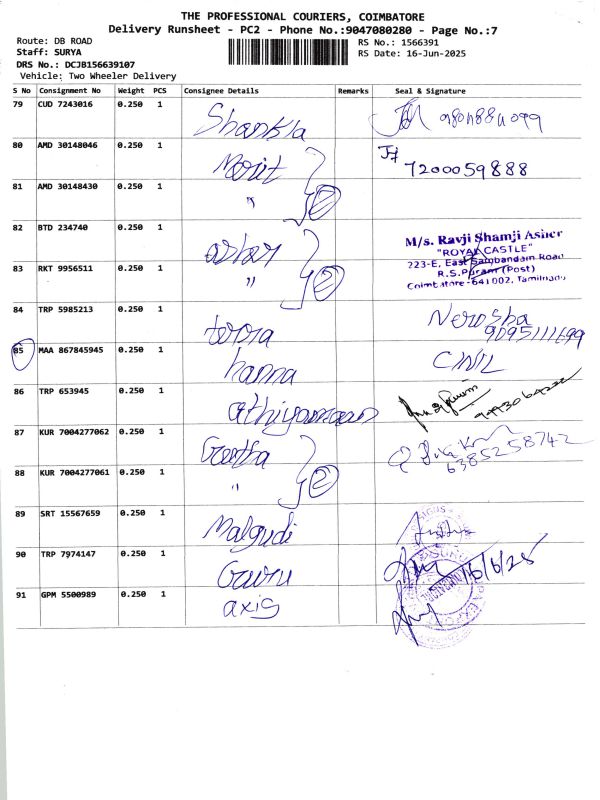 THE PROFESSIONAL COURIERS, COIMBATORE
Delivery Runsheet - PC2 - Phone No.:9047080280 - Page No.:7
Route: DB ROAD
RS No.: 1566391
Staff: SURYA
RS Date: 16-Jun-2025
DRS No.: DCJB156639107
Vehicle: Two Wheeler Delivery
S No Consignment No Weight PCS Consignee Details Remarks Seal & Signature
79 CUD 7243016 0.250 1 Shankla
80 AMD 30148046 0.250 1 7200059888
81 AMD 30148430 0.250 1 " 2
82 BTD 234740 0.250 1 ashar
M/s. Ravji Shamji Asher
"ROYAL CASTLE"
223-E, East Sambandam Road
R.S.Puram (Post)
Coimbatore-641002, Tamilnadu
83 RKT 9956511 0.250 1 " 2
84 TRP 5985213 0.250 1 Nerosha
9095111699
85 MAA 867845945 0.250 1 hanna
86 TRP 653945 0.250 1 athiyamaan
87 KUR 7004277062 0.250 1 Geetha
6385258742
88 KUR 7004277061 0.250 1 " 2
89 SRT 15567659 0.250 1 Malgudi
90 TRP 7974147 0.250 1 Gauru 16/6/25
91 GPM 5500989 0.250 1 axis